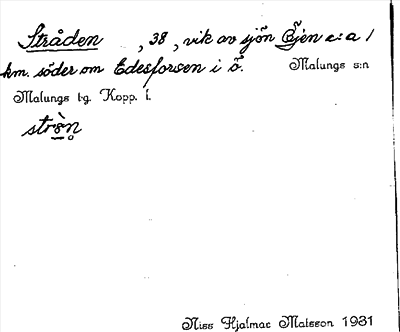 Stråden , 38, vik av sjön Öjen c:a 1
km. söder om Edesforsen i ö. Malungs s:n
Malungs tg. Kopp. l.
Nils Hjalmar Matsson 1931